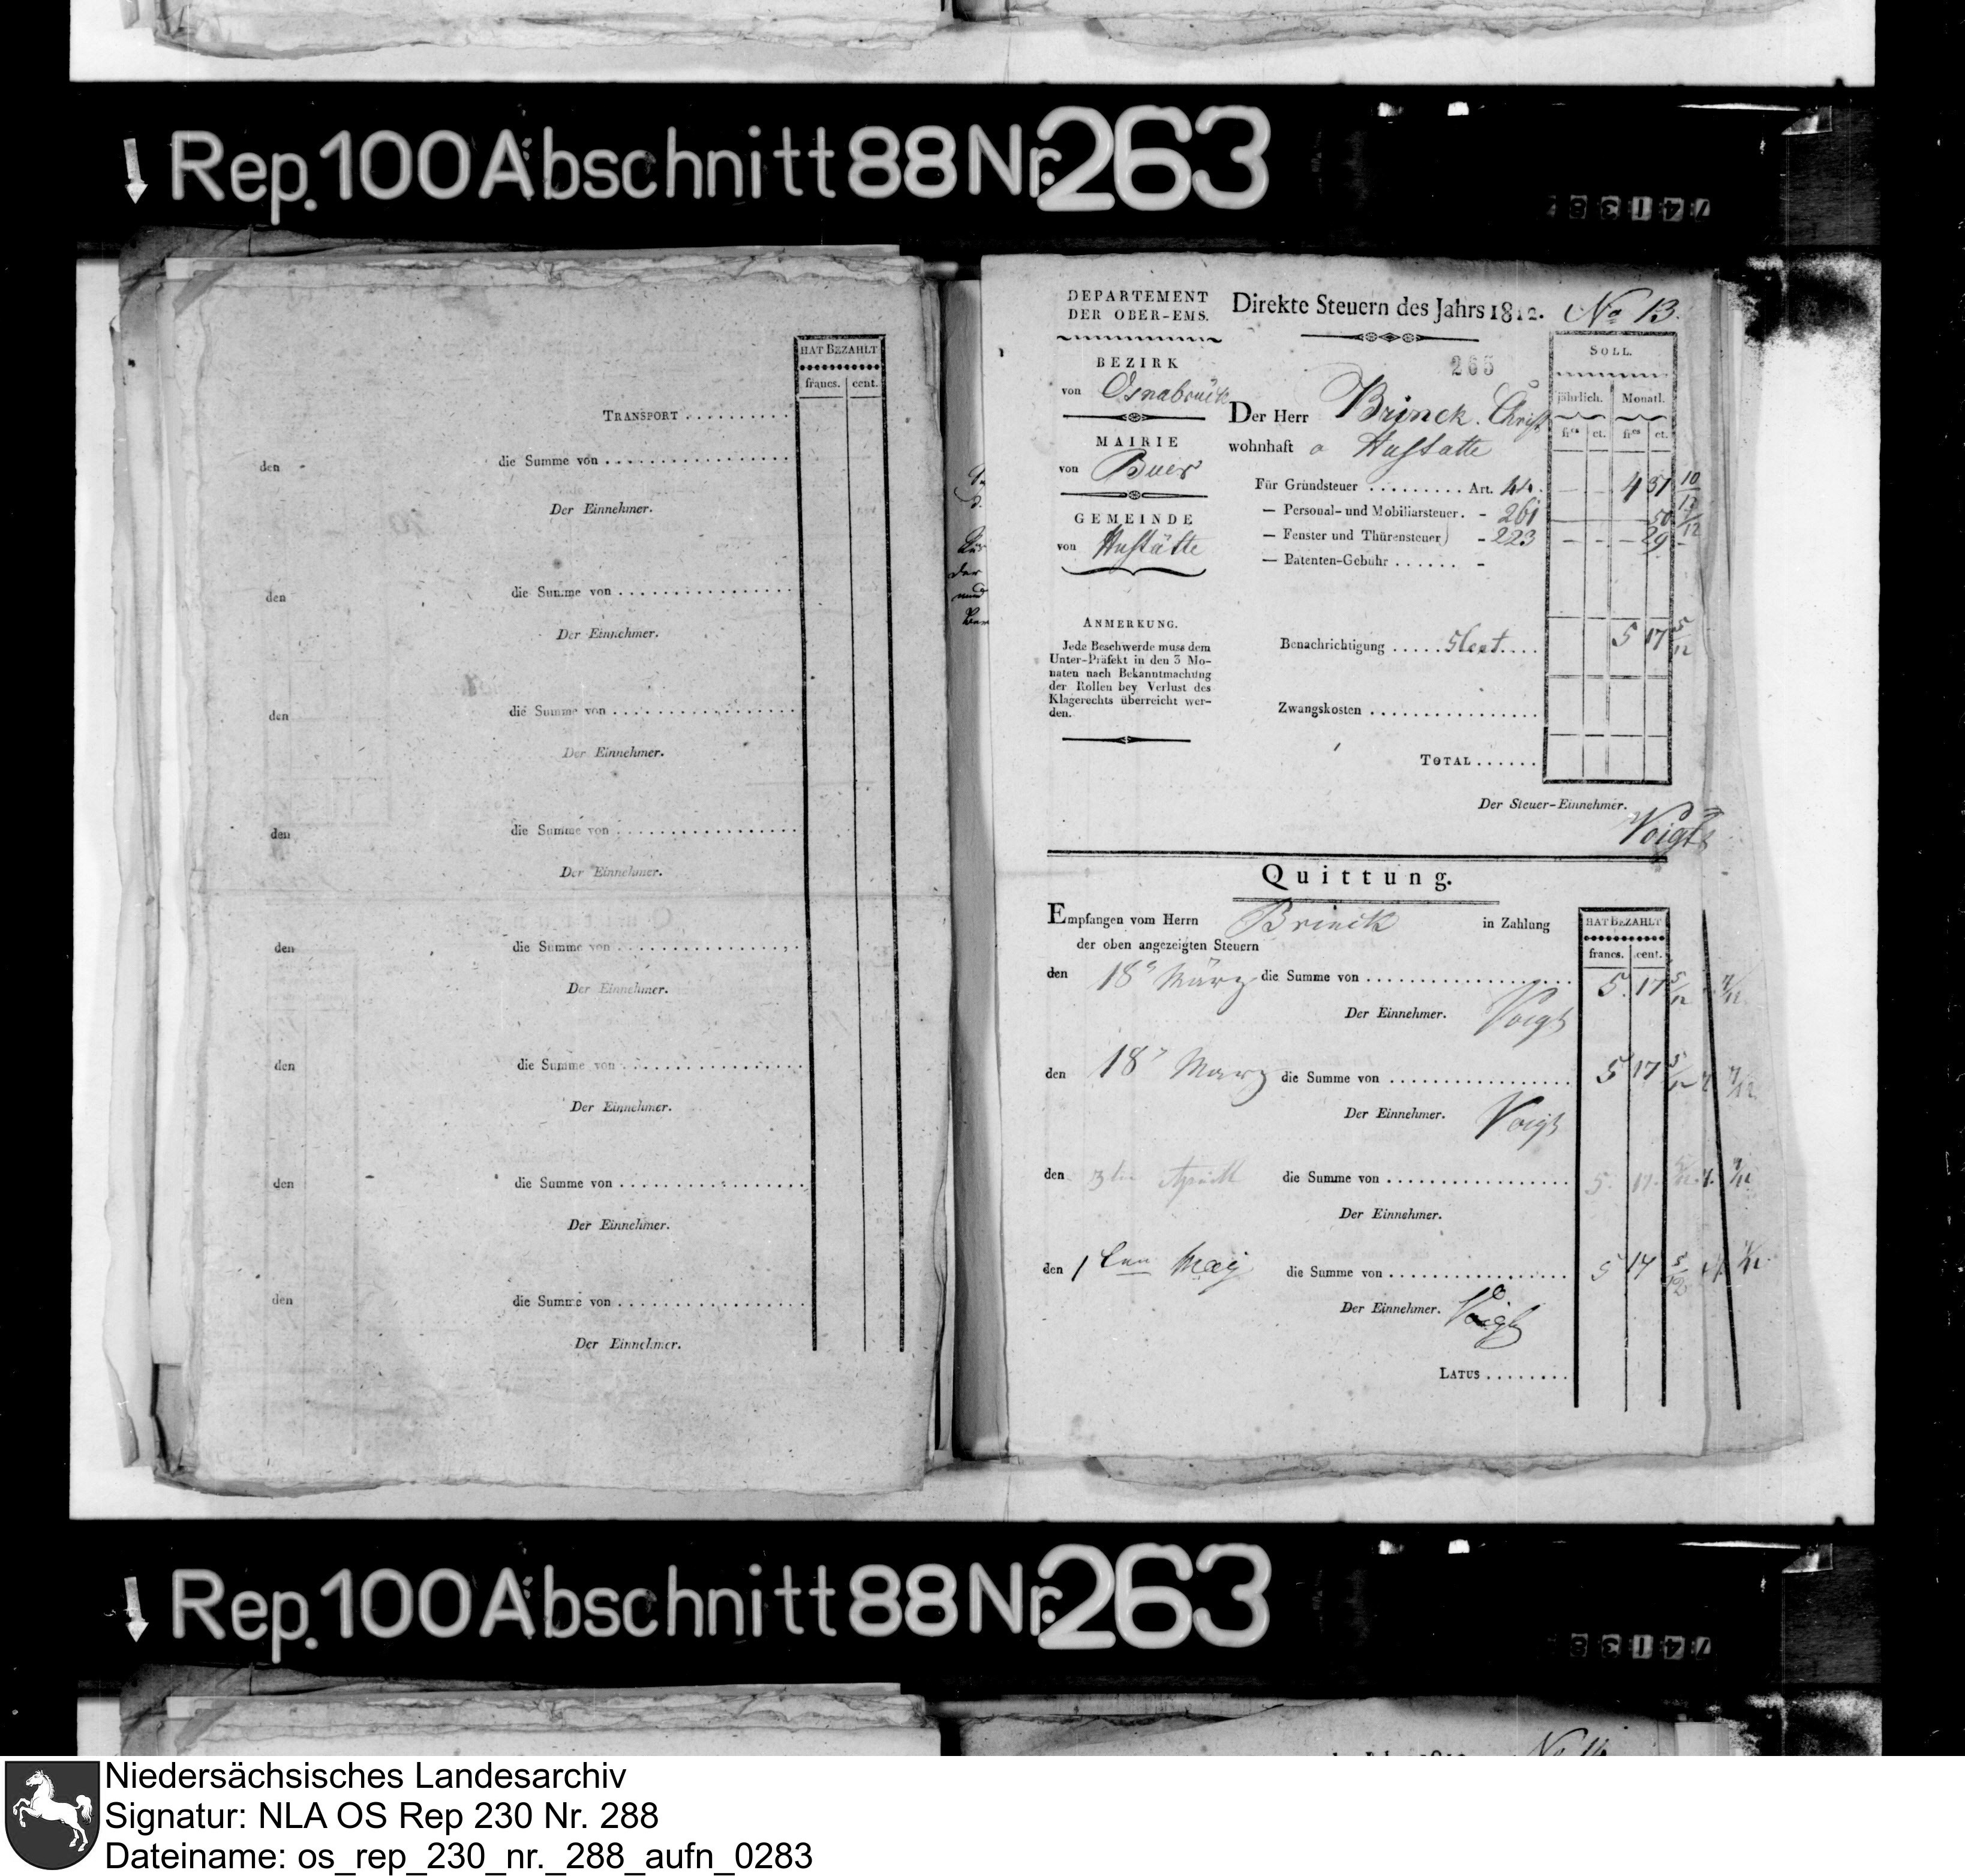 Rep. 100 Abschnitt 88 Nr. 263
HAT BEZAHLT
francs. cent.
TRANSPORT . . . . . . . . . .
den die Summe von . . . . . . . . . . . . . . . . .
Der Einnehmer.
den die Summe von . . . . . . . . . . . . . . . . .
Der Einnehmer.
den die Summe von . . . . . . . . . . . . . . . . .
Der Einnehmer.
den die Summe von . . . . . . . . . . . . . . . . .
Der Einnehmer.
den die Summe von . . . . . . . . . . . . . . . . .
Der Einnehmer.
den die Summe von . . . . . . . . . . . . . . . . .
Der Einnehmer.
den die Summe von . . . . . . . . . . . . . . . . .
Der Einnehmer.
den die Summe von . . . . . . . . . . . . . . . . .
Der Einnehmer.
DEPARTEMENT
DER OBER-EMS.
BEZIRK
von Osnabrück
MAIRIE
von Buer
GEMEINDE
von Hustätte
ANMERKUNG.
Jede Beschwerde muss dem
Unter-Präfekt in den 3 Mo-
naten nach Bekanntmachung
der Rollen bey Verlust des
Klagerechts überreicht wer-
den.
Direkte Steuern des Jahrs 1812. No 13.
265
Der Herr Brinck. Christ
wohnhaft a Hustatte
SOLL.
jährlich. Monatl.
frcs ct. frcs ct.
Für Grundsteuer . . . . . . . . . Art. 44. 4 37 10/12
— Personal- und Mobiliarsteuer. - 261 50 /12
— Fenster und Thürensteuer - 223 29 -
— Patenten-Gebühr . . . . . . -
Benachrichtigung . . . . . 5 Cent. . . . 5 17 5/12
Zwangskosten . . . . . . . . . . . . . . . .
TOTAL . . . . . .
Der Steuer-Einnehmer.
Voigt
Quittung.
Empfangen vom Herrn Brinck in Zahlung
der oben angezeigten Steuern
HAT BEZAHLT
francs. cent.
den 18 März die Summe von . . . . . . . . . . . . . . . . . . 5. 17 5/12
Der Einnehmer. Voigt
den 18 Marz die Summe von . . . . . . . . . . . . . . . . . 5 17 5/12
Der Einnehmer. Voigt
den 3ten Aprill die Summe von . . . . . . . . . . . . . . . . . 5. 17.
Der Einnehmer.
den 1ten May die Summe von . . . . . . . . . . . . . . . . . 5 17 5/12
Der Einnehmer. Voigt
LATUS . . . . . . . .
Rep. 100 Abschnitt 88 Nr. 263
Niedersächsisches Landesarchiv
Signatur: NLA OS Rep 230 Nr. 288
Dateiname: os_rep_230_nr._288_aufn_0283